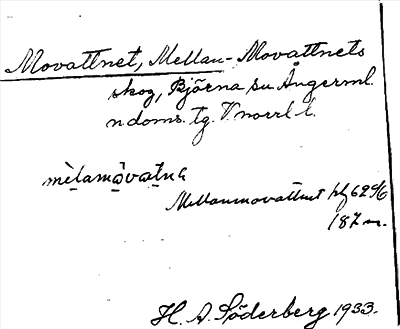 Movattnet, Mellan-Movattnets
skog, Björna sn Ångerml.
n doms. tg. V. norrl. l.
mèlamòvatnɐ
Mellanmovattnet hf 6296
187 m.
H. A. Söderberg 1933.